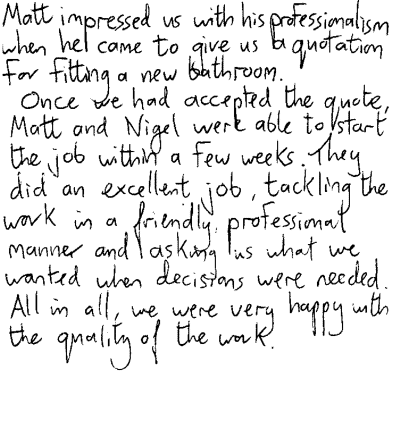 Matt impressed us with his professionalism
when he came to give us a quotation
for fitting a new bathroom.
Once we had accepted the quote,
Matt and Nigel were able to start
the job within a few weeks. They
did an excellent job, tackling the
work in a friendly, professional
manner and asking us what we
wanted when decisions were needed.
All in all, we were very happy with
the quality of the work.